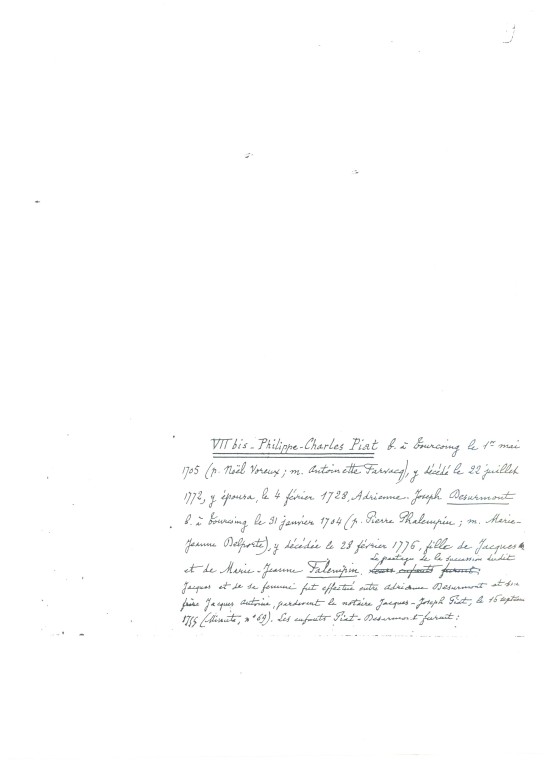 VII bis - Philippe-Charles Piat b. à Tourcoing le 1er mai
1705 (p. Noël Voreux ; m. Antoinette Farvacq), y décédé le 22 juillet
1772, y épousa, le 4 février 1728, Adrienne-Joseph Desurmont
b. à Tourcoing le 31 janvier 1704 (p. Pierre Phalempin ; m. Marie-
Jeanne Delporte), y décédée le 28 février 1775, fille de Jacques
Le partage de la succession dudit
et de Marie-Jeanne Falempin. Leurs enfants furent :
Jacques et de sa femme fut effectué entre Adrienne Desurmont et son
frère Jacques Antoine, pardevant le notaire Jacques-Joseph Piat, le 15 septembre
(Minute, n° 69). Les enfants Piat-Desurmont furent :